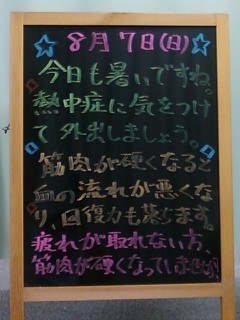 8月7日(日)
今日も暑いですね。
熱中症に気をつけ
て外出しましょう。
筋肉が硬くなると
血の流れが悪くな
り、回復力も落ちます。
疲れが取れない方、
筋肉が硬くなっていませんか?